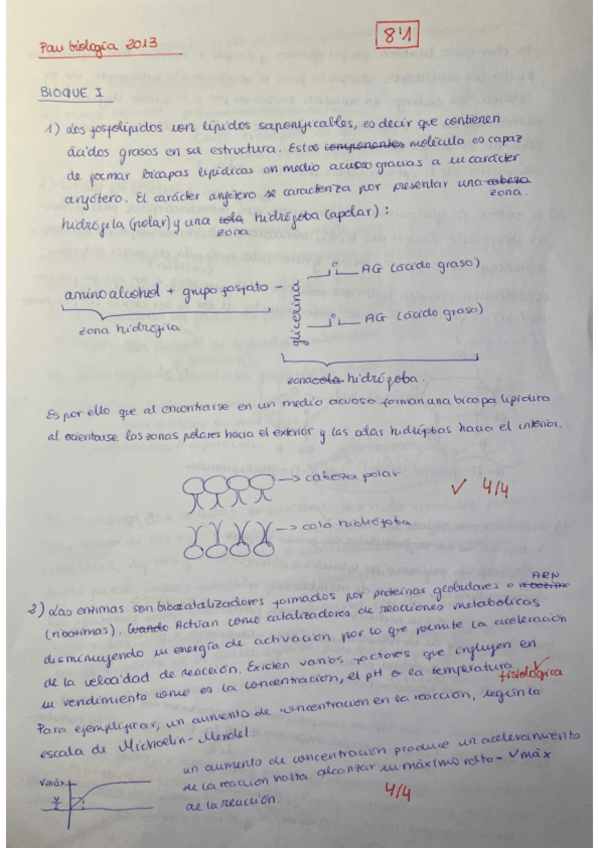 Pau biología 2013
8'1
BLOQUE I
1) Los fosfolípidos son lípidos saponificables, es decir que contienen
ácidos grasos en su estructura. Estos componentes molécula es capaz
de formar bicapas lipídicas en medio acuoso gracias a su carácter
anfótero. El carácter anfótero se caracteriza por presentar una cabeza
zona.
hidrófila (polar) y una cola hidrófoba (apolar):
zona
aminoalcohol + grupo fosfato -
glicerina
AG (ácido graso)
AG (ácido graso)
zona hidrófila
zona cola hidrófoba.
Es por ello que al encontrarse en un medio acuoso forman una bicapa lipídica
al orientarse las zonas polares hacia el exterior y las hacia el interior.
→ cabeza polar
✓ 4/4
→ cola hidrófoba
ARN
3) Las enzimas son biocatalizadores formados por proteínas globulares o
(ribozimas). Cuando Actúan como catalizadores de reacciones metabólicas
disminuyendo su energía de activación por lo que permite la aceleración
de la velocidad de reacción. Existen varios factores que influyen en
su rendimiento como es la concentración, el pH o la temperatura
fisiológica
Para ejemplificar, un aumento de concentración en la reacción, según la
escala de
un aumento de concentración produce un aceleramiento
de la reacción hasta alcanzar su máximo - Vmáx
de la reacción.
Vmáx
4/4